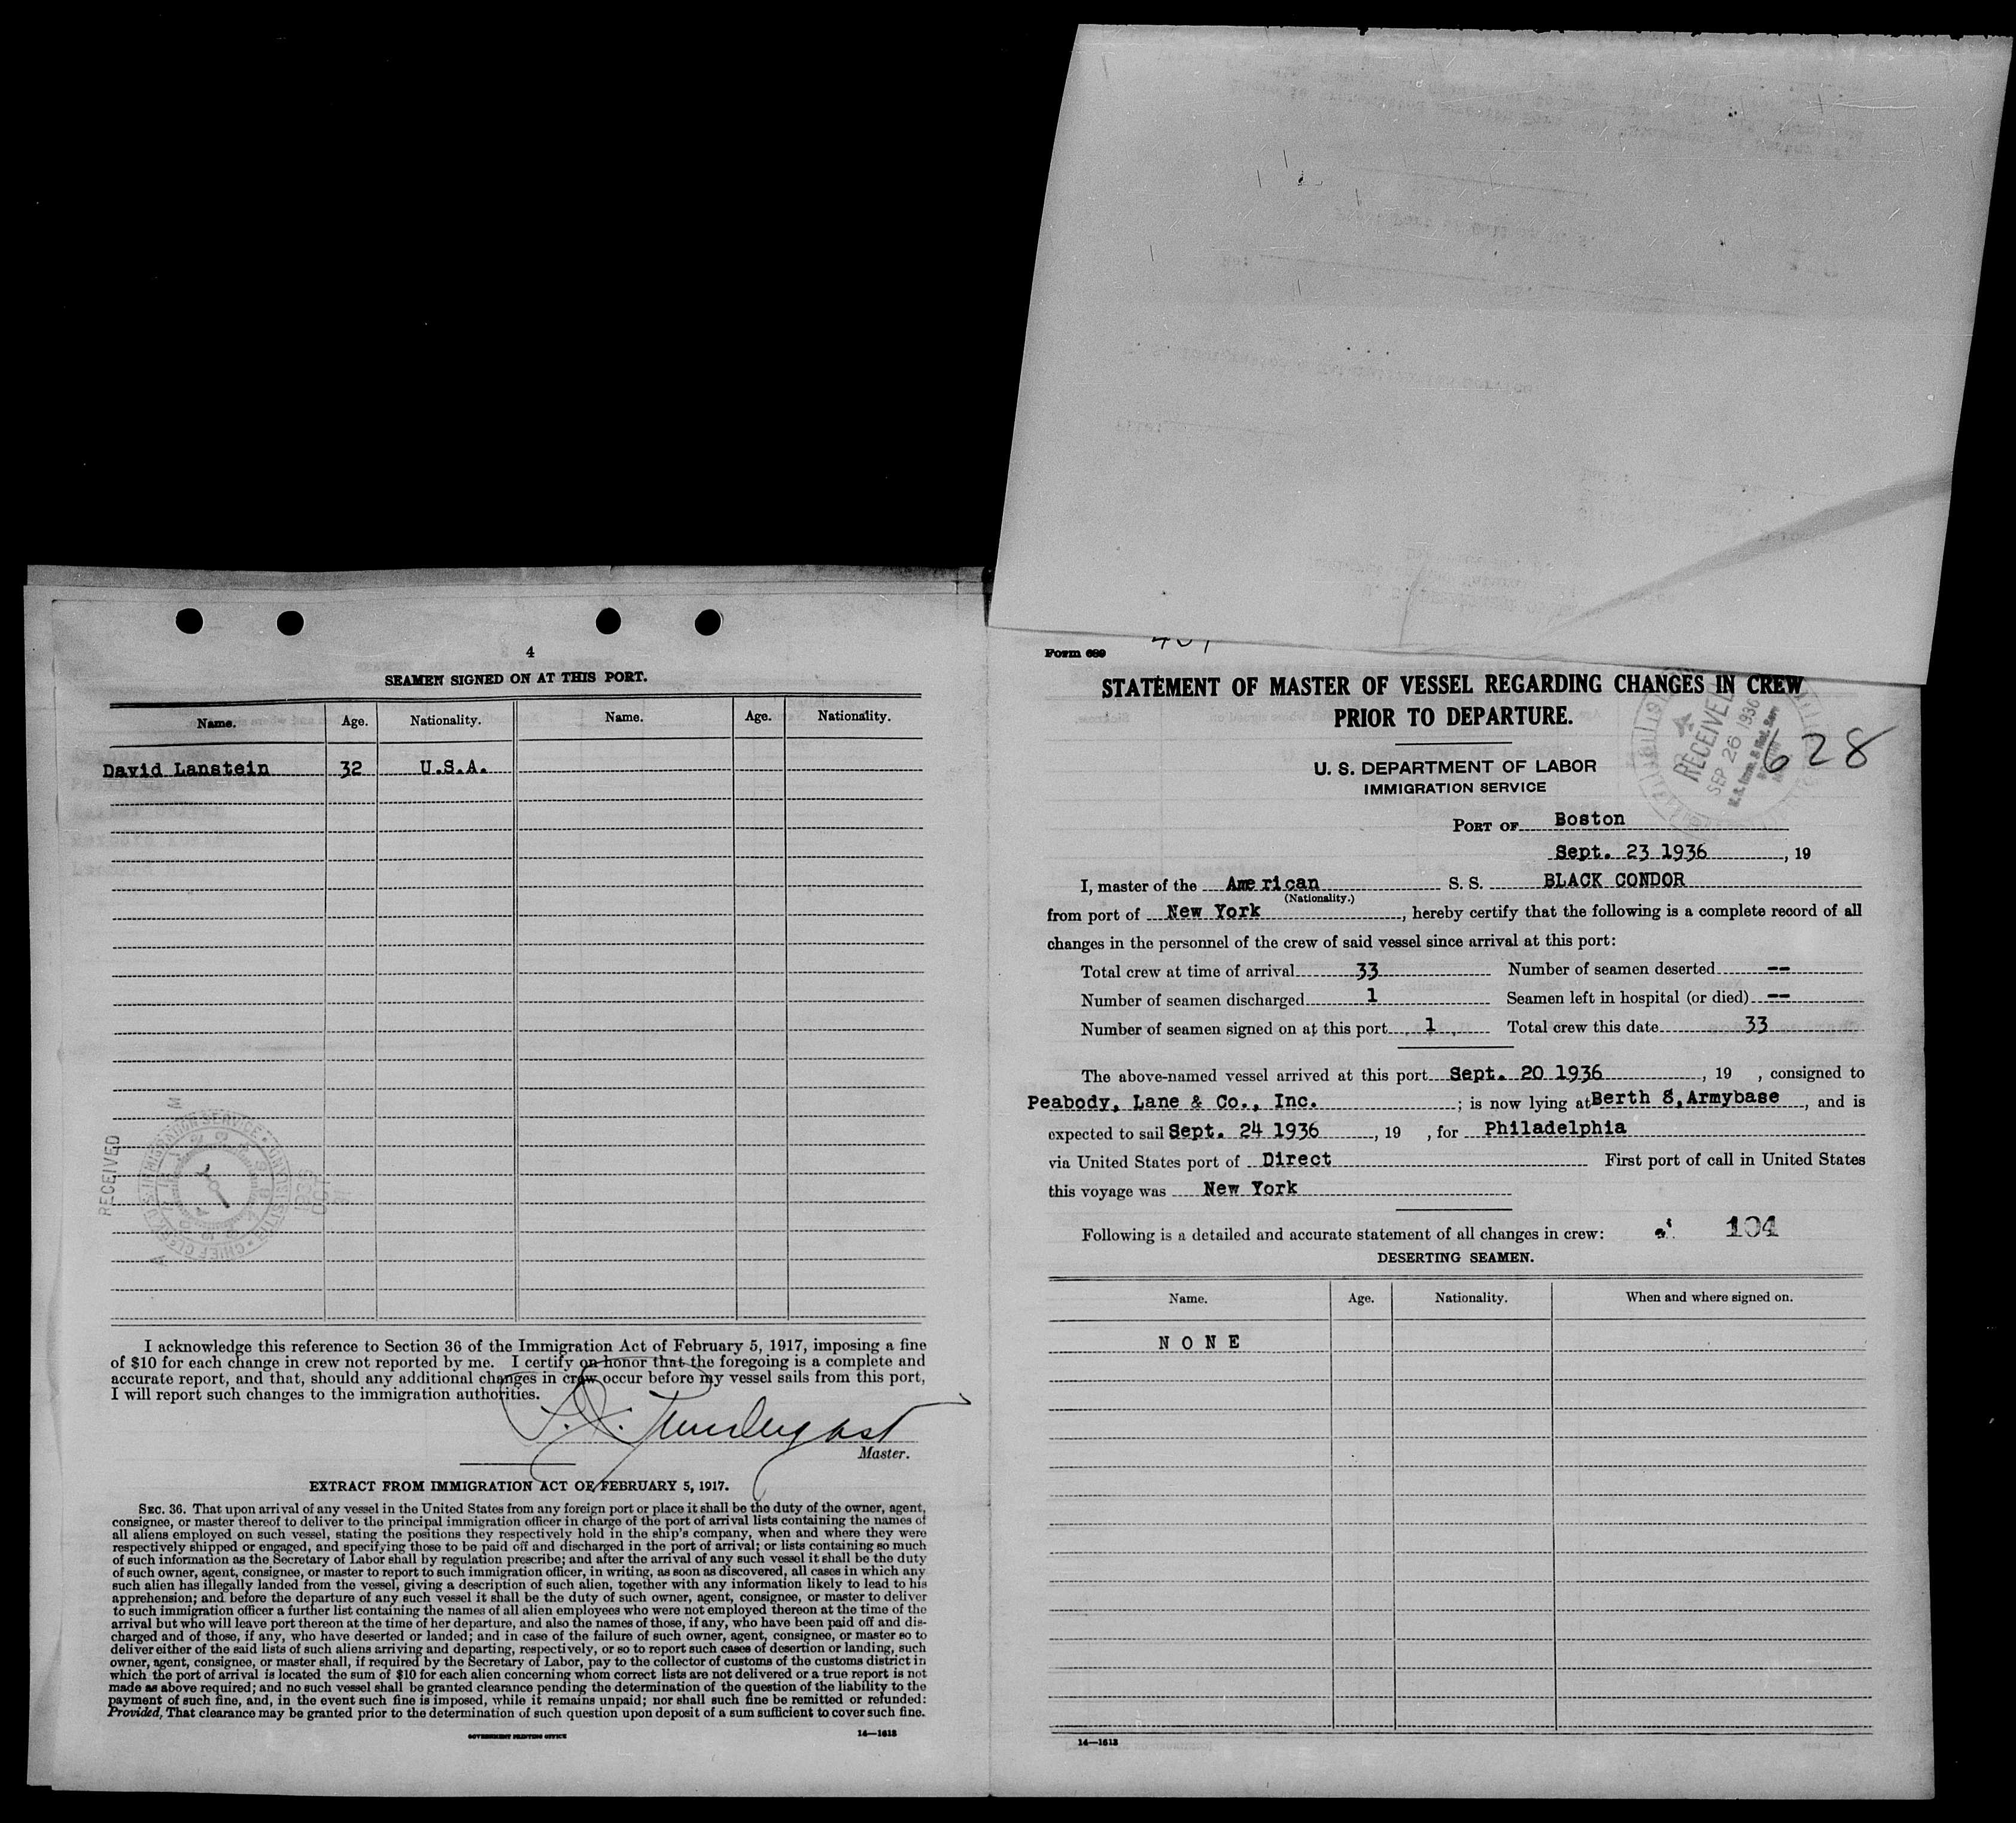 4
SEAMEN SIGNED ON AT THIS PORT.
Name. Age. Nationality. Name. Age. Nationality.
David Lanstein 32 U.S.A.
RECEIVED
I acknowledge this reference to Section 36 of the Immigration Act of February 5, 1917, imposing a fine
of $10 for each change in crew not reported by me. I certify on honor that the foregoing is a complete and
accurate report, and that, should any additional changes in crew occur before my vessel sails from this port,
I will report such changes to the immigration authorities.
Master.
EXTRACT FROM IMMIGRATION ACT OF FEBRUARY 5, 1917.
SEC. 36. That upon arrival of any vessel in the United States from any foreign port or place it shall be the duty of the owner, agent,
consignee, or master thereof to deliver to the principal immigration officer in charge of the port of arrival lists containing the names of
all aliens employed on such vessel, stating the positions they respectively hold in the ship's company, when and where they were
respectively shipped or engaged, and specifying those to be paid off and discharged in the port of arrival; or lists containing so much
of such information as the Secretary of Labor shall by regulation prescribe; and after the arrival of any such vessel it shall be the duty
of such owner, agent, consignee, or master to report to such immigration officer, in writing, as soon as discovered, all cases in which any
such alien has illegally landed from the vessel, giving a description of such alien, together with any information likely to lead to his
apprehension; and before the departure of any such vessel it shall be the duty of such owner, agent, consignee, or master to deliver
to such immigration officer a further list containing the names of all alien employees who were not employed thereon at the time of the
arrival but who will leave port thereon at the time of her departure, and also the names of those, if any, who have been paid off and dis-
charged and of those, if any, who have deserted or landed; and in case of the failure of such owner, agent, consignee, or master so to
deliver either of the said lists of such aliens arriving and departing, respectively, or so to report such cases of desertion or landing, such
owner, agent, consignee, or master shall, if required by the Secretary of Labor, pay to the collector of customs of the customs district in
which the port of arrival is located the sum of $10 for each alien concerning whom correct lists are not delivered or a true report is not
made as above required; and no such vessel shall be granted clearance pending the determination of the question of the liability to the
payment of such fine, and, in the event such fine is imposed, while it remains unpaid; nor shall such fine be remitted or refunded:
Provided, That clearance may be granted prior to the determination of such question upon deposit of a sum sufficient to cover such fine.
GOVERNMENT PRINTING OFFICE 14—1613
Form 689
STATEMENT OF MASTER OF VESSEL REGARDING CHANGES IN CREW
PRIOR TO DEPARTURE.
RECEIVED
SEP 26 1936
628
U. S. DEPARTMENT OF LABOR
IMMIGRATION SERVICE
PORT OF Boston
Sept. 23 1936, 19
I, master of the American S. S. BLACK CONDOR
(Nationality.)
from port of New York, hereby certify that the following is a complete record of all
changes in the personnel of the crew of said vessel since arrival at this port:
Total crew at time of arrival 33 Number of seamen deserted --
Number of seamen discharged 1 Seamen left in hospital (or died) --
Number of seamen signed on at this port 1 Total crew this date 33
The above-named vessel arrived at this port Sept. 20 1936, 19 , consigned to
Peabody, Lane & Co., Inc. ; is now lying at Berth 8, Armybase, and is
expected to sail Sept. 24 1936, 19 , for Philadelphia
via United States port of Direct First port of call in United States
this voyage was New York
Following is a detailed and accurate statement of all changes in crew: 104
DESERTING SEAMEN.
Name. Age. Nationality. When and where signed on.
N O N E
14—1613